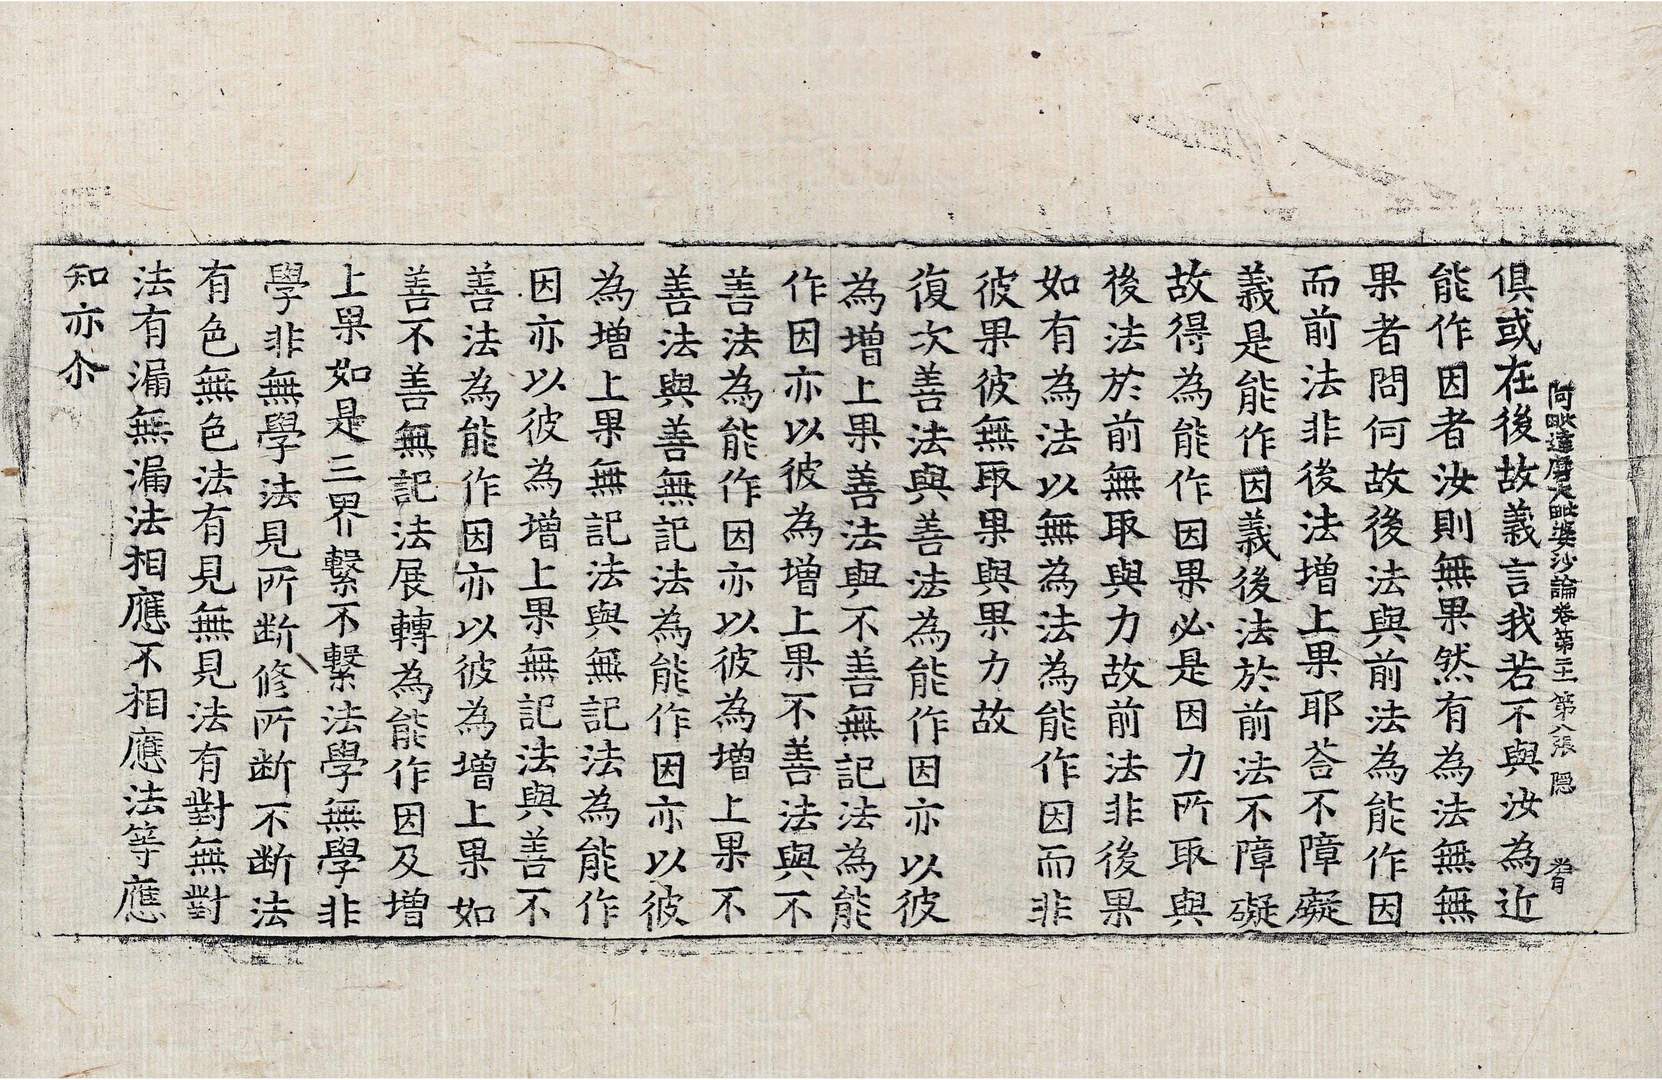 阿毗達磨大毗婆沙論卷第二十一 第八張 隱
俱或在後故義言我若不與汝為近
能作因者汝則無果然有為法無無
果者問何故後法與前法為能作因
而前法非後法增上果耶荅不障礙
義是能作因義後法於前法不障礙
故得為能作因果必是因力所取與
後法於前無取與力故前法非後果
如有為法以無為法為能作因而非
彼果彼無取果與果力故
復次善法與善法為能作因亦以彼
為增上果善法與不善無記法為能
作因亦以彼為增上果不善法與不
善法為能作因亦以彼為增上果不
善法與善無記法為能作因亦以彼
為增上果無記法與無記法為能作
因亦以彼為增上果無記法與善不
善法為能作因亦以彼為增上果如
善不善無記法展轉為能作因及增
上果如是三界繫不繫法學無學非
學非無學法見所斷修所斷不斷法
有色無色法有見無見法有對無對
法有漏無漏法相應不相應法等應
知亦尒